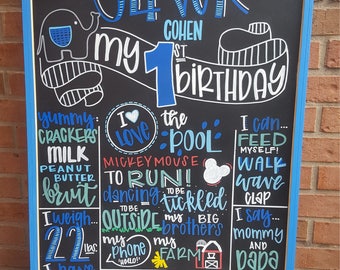 COHEN
my 1ST BIRTHDAY
yummy:
CRACKERS
MILK
PEANUT
BUTTER
fruit
I WEIGH...
22 lbs.
I
♥
LOVE
the
POOL
MICKEY MOUSE
TO RUN!
dancing
TO BE
tickled
TO BE
OUTSIDE
my BIG
brothers
my
PHONE
HELLO!
my
FARM
I can...
FEED
MYSELF!
WALK
wave
CLAP
I say...
mommy
AND
DADA